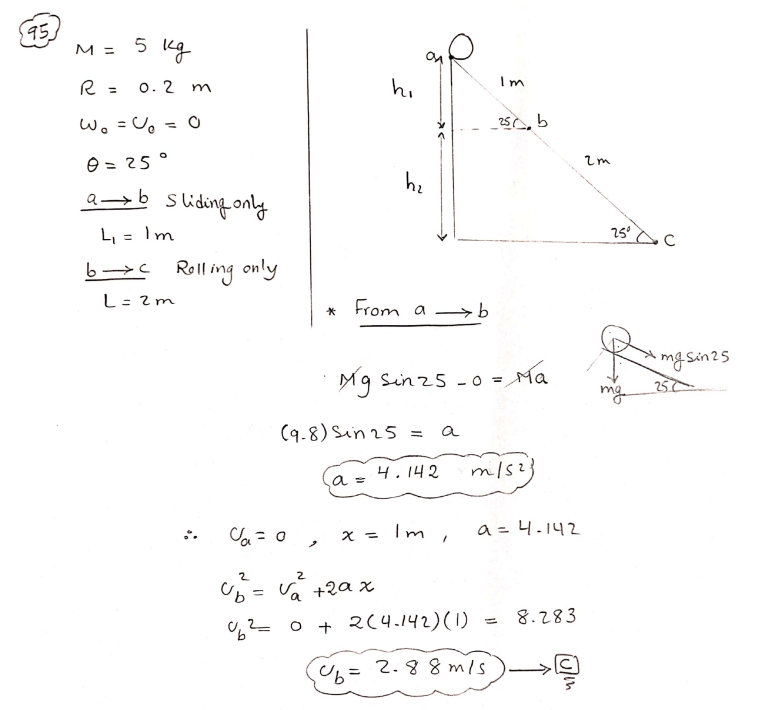 95
M = 5 kg
R = 0.2 m
ω₀ = v₀ = 0
θ = 25°
a → b Sliding only
L₁ = 1m
b → c Rolling only
L = 2m
a
h₁
1m
25
b
h₂
2m
25°
c
* From a → b
Mg Sin25 - 0 = Ma
mg Sin25
mg
25
(9.8) Sin25 = a
a = 4.142 m/s²
∴ v_a = 0 , x = 1m , a = 4.142
v_b² = v_a² + 2ax
v_b² = 0 + 2(4.142)(1) = 8.283
v_b = 2.88 m/s → C